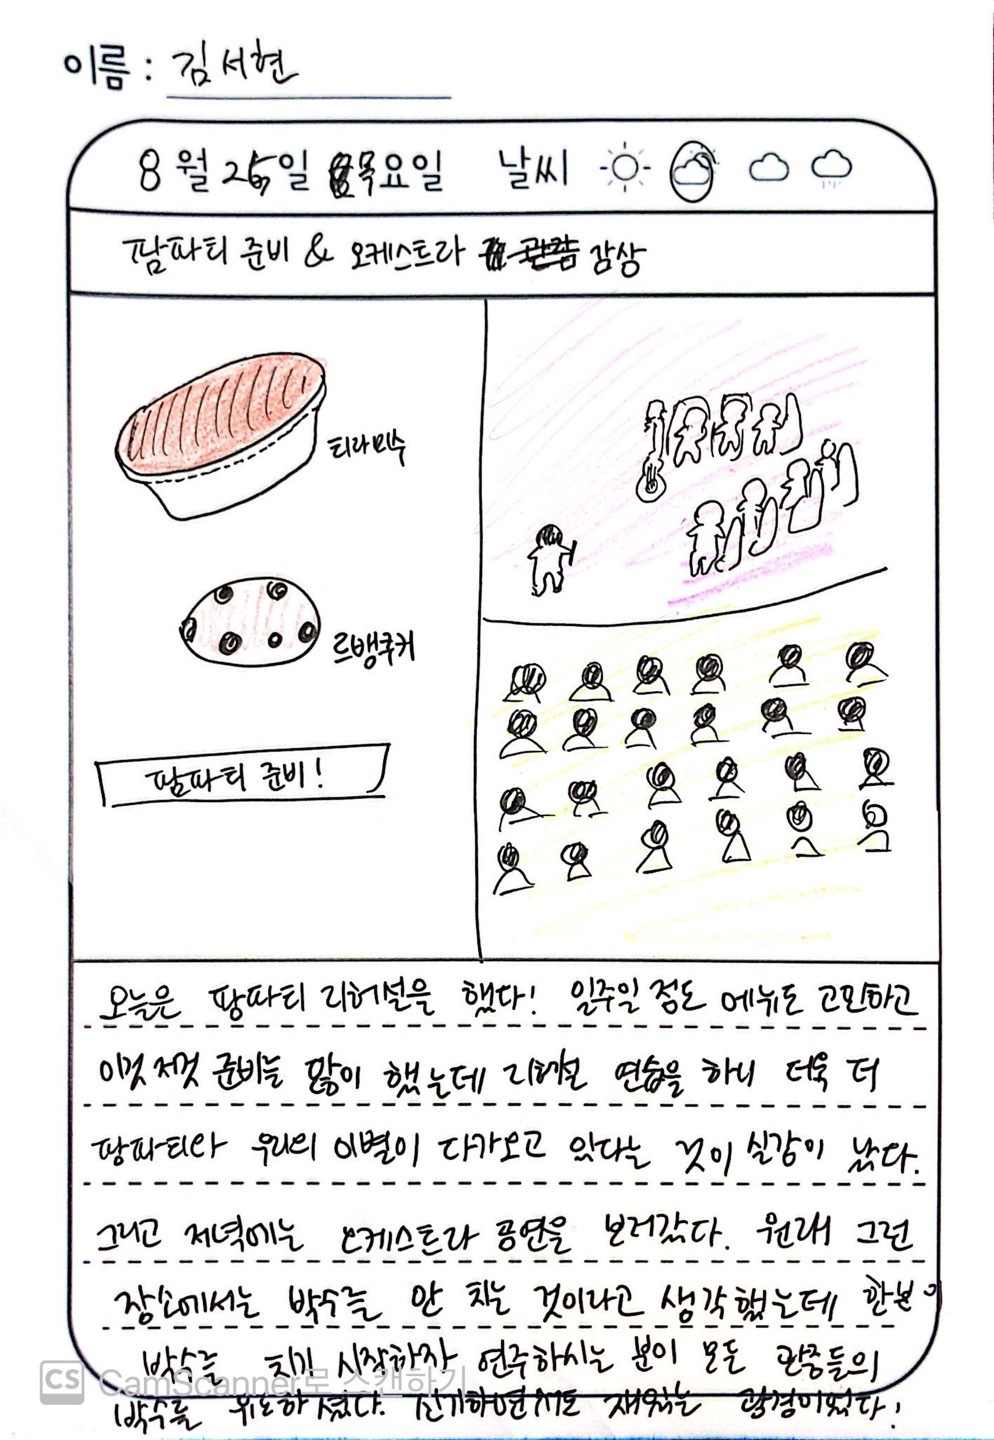 이름 : 김서현
8월 25일 목요일 날씨
팜파티 준비 & 오케스트라 감상
티라미수
르뱅쿠키
팜파티 준비!
오늘은 팜파티 리허설을 했다! 일주일 정도 메뉴도 고민하고
이것 저것 준비를 많이 했는데 리허설 연습을 하니 더욱 더
팜파티와 우리의 이별이 다가오고 있다는 것이 실감이 났다.
그리고 저녁에는 오케스트라 공연을 보러갔다. 원래 그런
장소에서는 박수를 안 치는 것이라고 생각했는데 한분이
박수를 치기 시작하자 연주하시는 분이 모든 관중들의
박수를 유도하셨다. 신기하면서도 재밌는 광경이었다!
CS CamScanner로 스캔하기